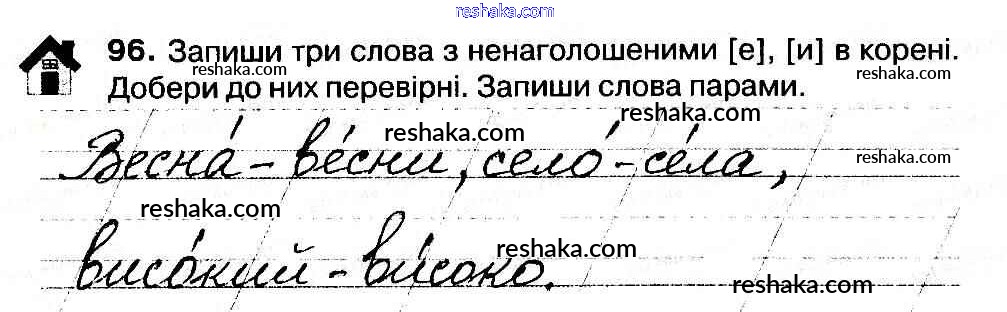 reshaka.com
96. Запиши три слова з ненаголошеними [е], [и] в корені.
reshaka.com
reshaka.com
Добери до них перевірні. Запиши слова парами.
reshaka.com
reshaka.com
Весна́ – ве́сни, село́ – се́ла,
reshaka.com
reshaka.com
reshaka.com
висо́кий – ви́соко.
reshaka.com